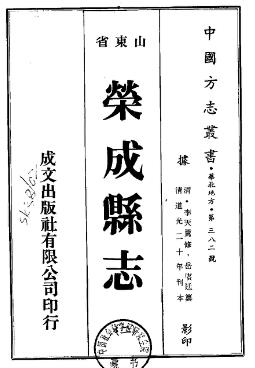 中國方志叢書・華北地方・第三八二號
據
清・李天騭修，岳賡廷纂
清道光二十年刊本
影印
山東省
榮成縣志
成文出版社有限公司印行